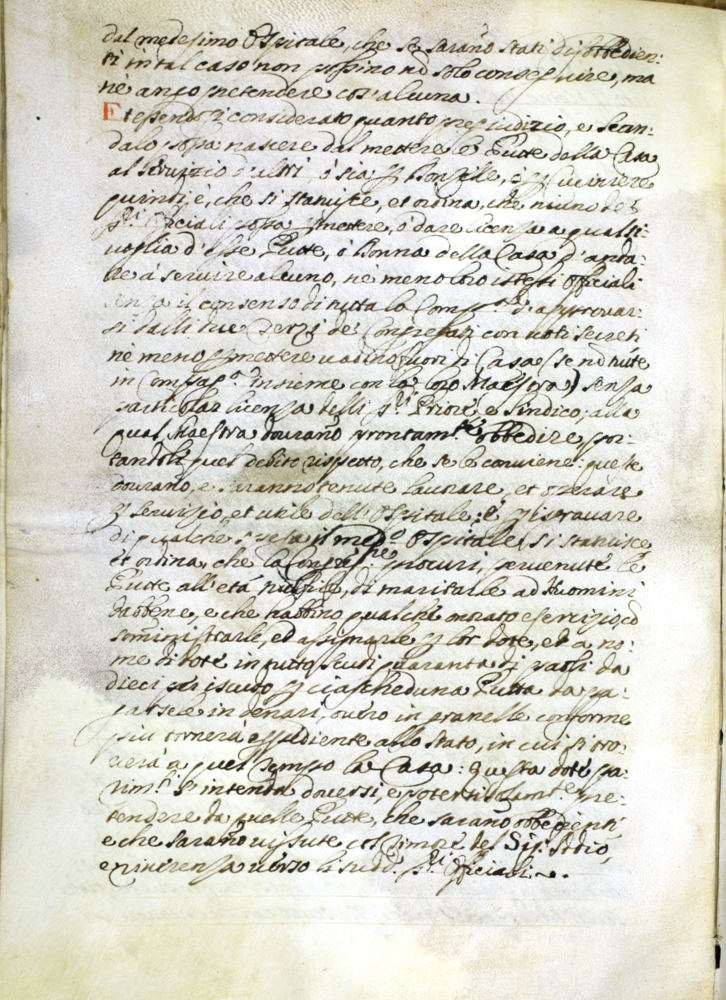 dal medesimo Ospitale, che se sarano stati disobbedien:
ti in tal caso non possino nò solo conseguire, ma
nè anco pretendere cos' alcuna.
Et essendosi considerato quanto pregiudizio, e scan:
dalo possa nascere dal mettere le Putte della Casa
al servizio d'altri, ò sia
quinti è, che si statuisce, et ordina, che niuno de S
S.ri Officiali possa pmettere, ò dare licenza a qualsi:
voglia d'esse Putte, ò Donna della Casa d'anda:
re à servire alcuno, nè meno loro istessi Officiali
senza il consenso di tutta la Comp.a d'approvar:
si dalli due Terzi de Congregati con voti secreti
nè meno pmettere vadino fuori di Casa (se nò tute
in Compag.a insieme con la loro Maestra) senza
particolar licenza delli S.ri Priore, e Sindico; alla
qual Maestra dourano prontam.te obbedire, por:
tandoli quel debito rispetto, che se le conviene: queste
dourano, e saranno tenute lavorare, et operare
p servizio, et utile dell'Ospitale; e p isgravare
di qualche spesa il med.o Ospitale, si statuisce
et ordina, che la Congreg.ne procuri, pervenute le
Putte all'età nubile, di maritarle ad Huomini
dabbene, e che habbino qualche onorato esercizio, cò
somministrarle, ed assignarle p lor dote, ed a no:
me di dote in tutto scudi quaranta di paoli da
dieci per iscudo p ciascheduna Putta da pa:
garsele in denari, overo in granelle conforme
più tornerà espediente allo stato, in cui si tro:
verà a quel tempo la Casa: Questa dote pa:
rim.te s'intenda doversi, e potersi solam.te pre:
tendere da quelle Putte, che sarano obbedienti,
e che sarano vissute col timor del Sig.r Iddio,
e riverenza verso li sudd. S.ri Officiali.